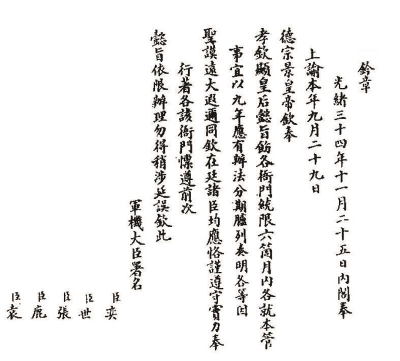 鈐章
光緒三十四年十一月二十五日內閣奉
上諭本年九月二十九日
德宗景皇帝欽奉
孝欽顯皇后懿旨飭各衙門統限六箇月內各就本管
事宜以九年應有辦法分期臚列奏明各等因
聖謨遠大遐邇同欽在廷諸臣均應恪謹遵守實力奉
行著各該衙門懍遵前次
懿旨依限辦理勿得稍涉延誤欽此
軍機大臣署名
臣奕
臣世
臣張
臣鹿
臣袁